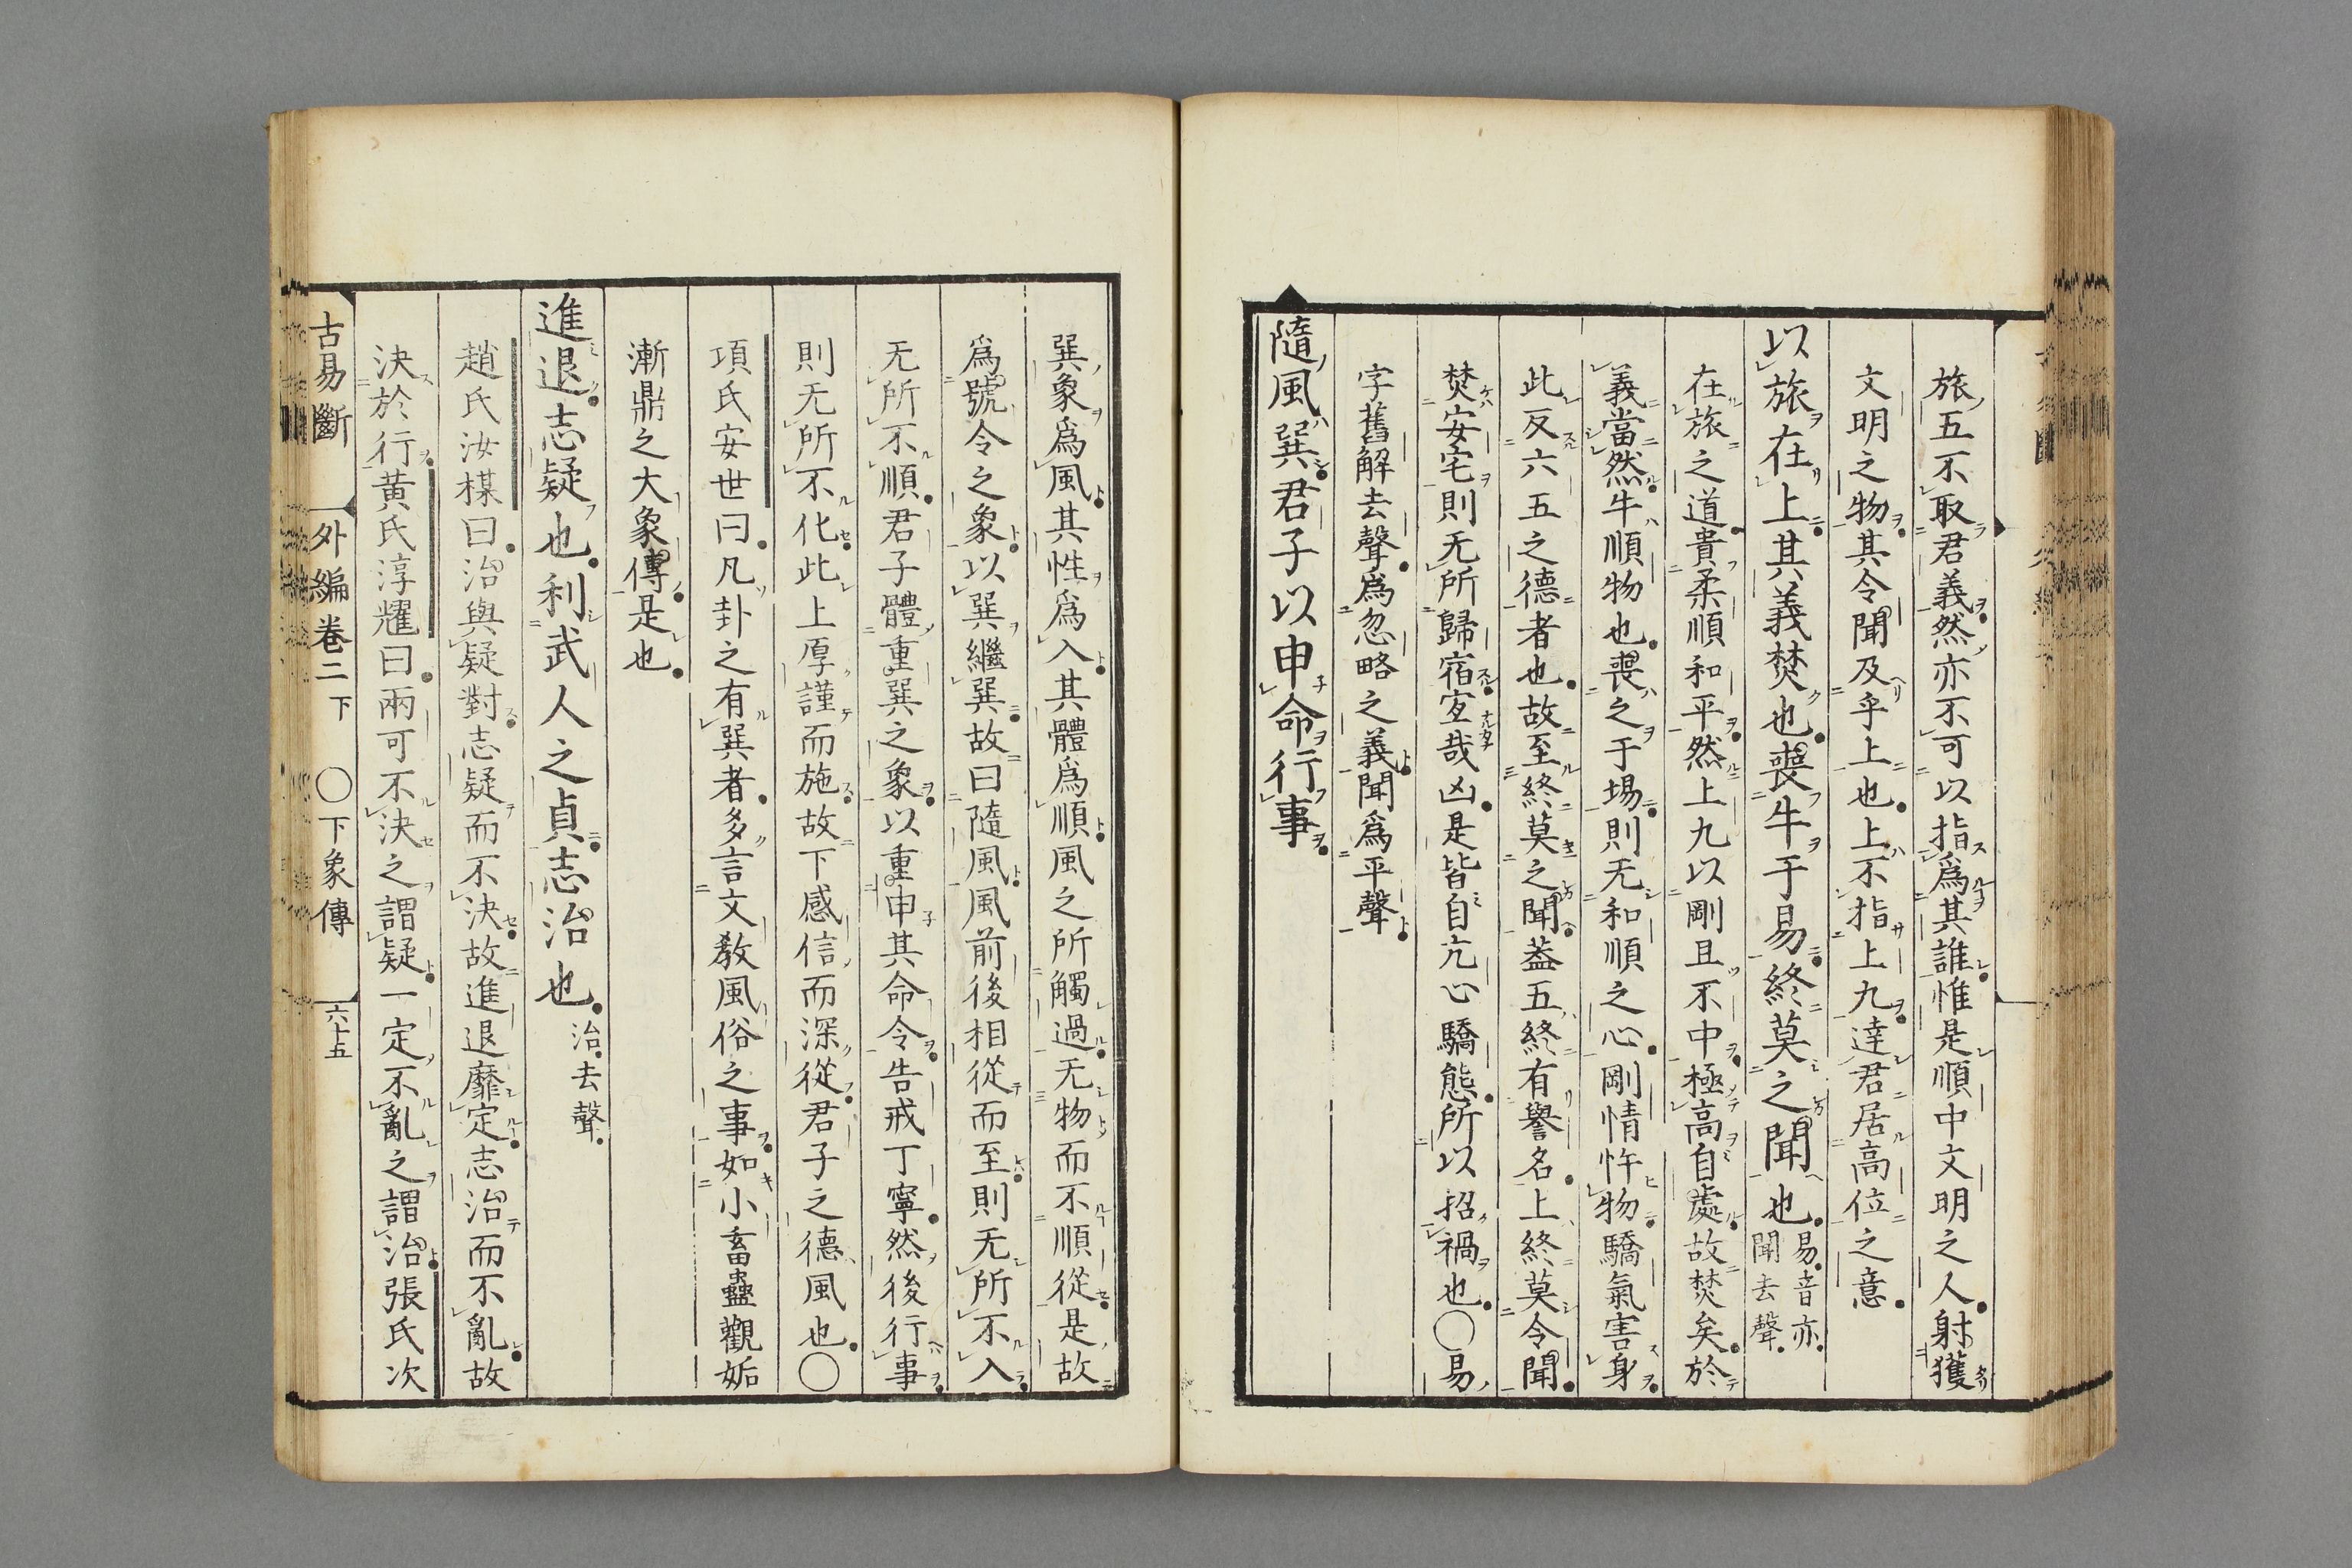 旅五不取君義然亦不可以指爲其誰惟是順中文明之人射獲
文明之物其令聞及乎上也上不指上九達君居高位之意
以旅在上其義焚也喪牛于易終莫之聞也易音亦聞去聲
在旅之道貴柔順和平然上九以剛且不中極高自處故焚矣於
義當然牛順物也喪之于埸則无和順之心剛情忤物驕氣害身
此反六五之德者也故至終莫之聞蓋五終有譽名上終莫令聞
焚安宅則无所歸宿宜哉凶是皆自亢心驕態所以招禍也〇易
字舊解去聲爲忽略之義聞爲平聲
隨風巽君子以申命行事
巽象爲風其性爲入其體爲順風之所觸過无物而不順從是故
爲號令之象以巽繼巽故曰隨風風前後相從而至則无所不入
无所不順君子體重巽之象以重申其命令告戒丁寧然後行事
則无所不化此上厚謹而施故下感信而深從君子之德風也〇
項氏安世曰凡卦之有巽者多言文教風俗之事如小畜蠱觀姤
漸鼎之大象傳是也
進退志疑也利武人之貞志治也治去聲
趙氏汝楳曰治與疑對志疑而不決故進退靡定志治而不亂故
決於行黃氏淳耀曰兩可不決之謂疑一定不亂之謂治張氏次
古易斷 外編卷二下 〇下象傳 六十五